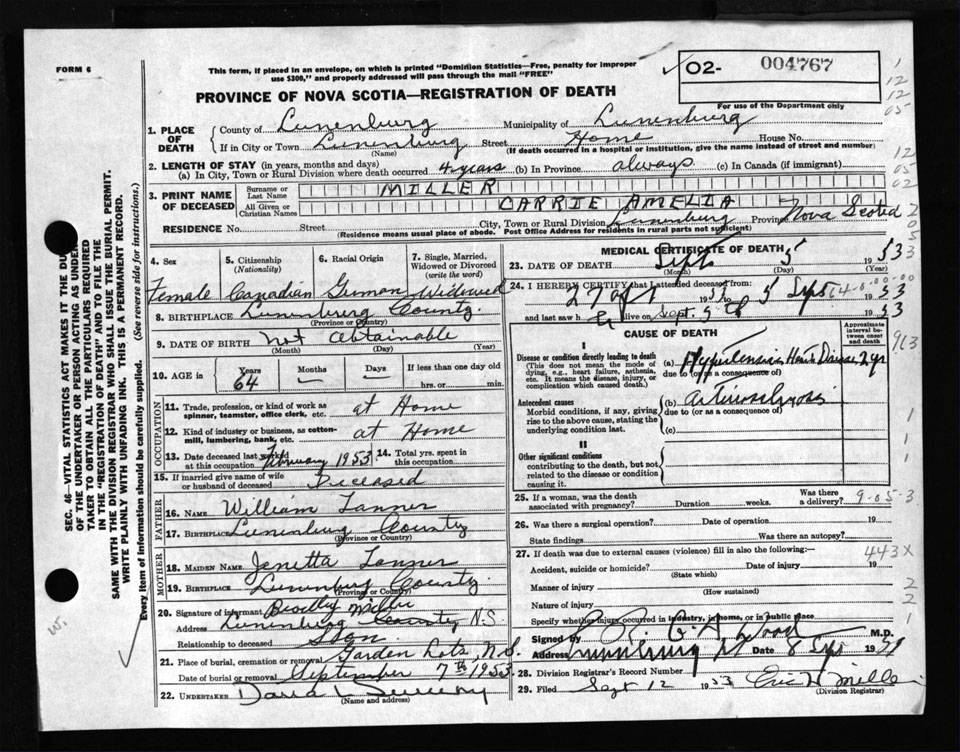 FORM 6
This form, if placed in an envelope, on which is printed "Dominion Statistics—Free, penalty for improper
use $300," and properly addressed will pass through the mail "FREE"
02- 004767
For use of the Department only
PROVINCE OF NOVA SCOTIA—REGISTRATION OF DEATH
1. PLACE OF DEATH
County of Lunenburg Municipality of Lunenburg
If in City or Town Lunenburg Street Home House No.
(Name) (If death occurred in a hospital or institution, give the name instead of street and number)
2. LENGTH OF STAY (in years, months and days)
(a) In City, Town or Rural Division where death occurred 4 years (b) In Province always (c) In Canada (if immigrant)
3. PRINT NAME OF DECEASED
Surname or Last Name MILLER
All Given or Christian Names CARRIE AMELIA
RESIDENCE No. Street City, Town or Rural Division Lunenburg Province Nova Scotia
(Residence means usual place of abode. Post Office Address for residents in rural parts not sufficient)
4. Sex 5. Citizenship (Nationality) 6. Racial Origin 7. Single, Married, Widowed or Divorced (write the word)
Female Canadian German Widowed
8. BIRTHPLACE Lunenburg County
(Province or Country)
9. DATE OF BIRTH not obtainable
(Month) (Day) (Year)
10. AGE in Years Months Days If less than one day old
64 — hrs. or min.
OCCUPATION
11. Trade, profession, or kind of work as spinner, teamster, office clerk, etc. at Home
12. Kind of industry or business, as cotton-mill, lumbering, bank, etc. at Home
13. Date deceased last worked at this occupation February 1953 14. Total yrs. spent in this occupation
15. If married give name of wife or husband of deceased Deceased
FATHER
16. NAME William Tanner
17. BIRTHPLACE Lunenburg County
(Province or Country)
MOTHER
18. MAIDEN NAME Tanner
19. BIRTHPLACE Lunenburg County
(Province or Country)
20. Signature of informant Miller
Address Lunenburg County N.S.
Relationship to deceased Son
21. Place of burial, cremation or removal Garden Lots, N.S.
Date of burial or removal September 7th 1953
22. UNDERTAKER
(Name and address)
MEDICAL CERTIFICATE OF DEATH
23. DATE OF DEATH Sept 5 1953
(Month) (Day) (Year)
24. I HEREBY CERTIFY that I attended deceased from:
27 to 5 Sept 1953
and last saw h alive on Sept. 5 1953
CAUSE OF DEATH Approximate interval between onset and death
I
Disease or condition directly leading to death
(This does not mean the mode of dying, e.g., heart failure, asthenia, etc. It means the disease, injury, or complication which caused death.)
(a) Hypertensive Heart Disease 2 yr
due to (or as a consequence of)
Antecedent causes
Morbid conditions, if any, giving rise to the above cause, stating the underlying condition last.
(b) arteriosclerosis
due to (or as a consequence of)
(c)
II
Other significant conditions
contributing to the death, but not related to the disease or condition causing it.
25. If a woman, was the death associated with pregnancy? Duration weeks. Was there a delivery?
9-05-3
26. Was there a surgical operation? Date of operation 19
State findings Was there an autopsy?
27. If death was due to external causes (violence) fill in also the following:—
443X
Accident, suicide or homicide? Date of injury 19
(State which)
Manner of injury
(How sustained)
Nature of injury
Specify whether injury occurred in industry, in home, or in public place
Signed by M.D.
Address Lunenburg Date 8 Sept 19
28. Division Registrar's Record Number
29. Filed Sept 12 1953
(Division Registrar)
SEC. 46—VITAL STATISTICS ACT MAKES IT THE DU
OF THE UNDERTAKER OR PERSON ACTING AS UNDER
TAKER TO OBTAIN ALL THE PARTICULARS REQUIRED
IN THE "REGISTRATION OF DEATH" AND TO FILE THE
SAME WITH THE DIVISION REGISTRAR WHO SHALL ISSUE THE BURIAL PERMIT.
WRITE PLAINLY WITH UNFADING INK. THIS IS A PERMANENT RECORD.
Every item of information should be carefully supplied. (See reverse side for instructions.)